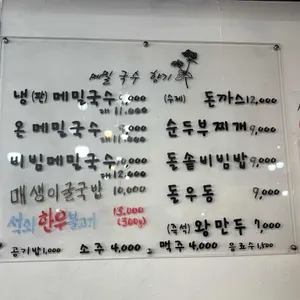 메밀 국수 향기
냉(판)메밀국수 9,000
대 11,000
온 메밀국수 9,000
대 11,000
비빔메밀국수 10,000
대 12,000
매생이굴국밥 10,000
석쇠 한우불고기 13,000
(300g)
공기밥 1,000
소주 4,000
(수제) 돈까스 12,000
순두부찌개 9,000
돌솥비빔밥 9,000
돌우동 9,000
(즉석) 왕만두 7,000
맥주 4,000
음료수 1,500